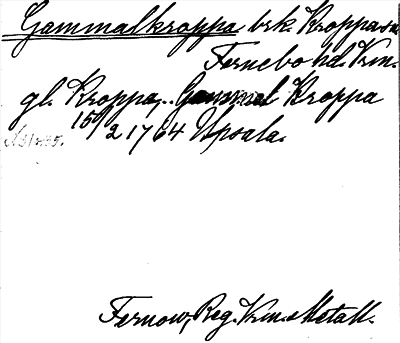 Gammalkroppa brk. Kroppa sn.
Fernebo hd. Krm.
gl. Kroppa, Gammal Kroppa
15/2 1764 Upsala.
Fernow, Reg. Krm. Metall.